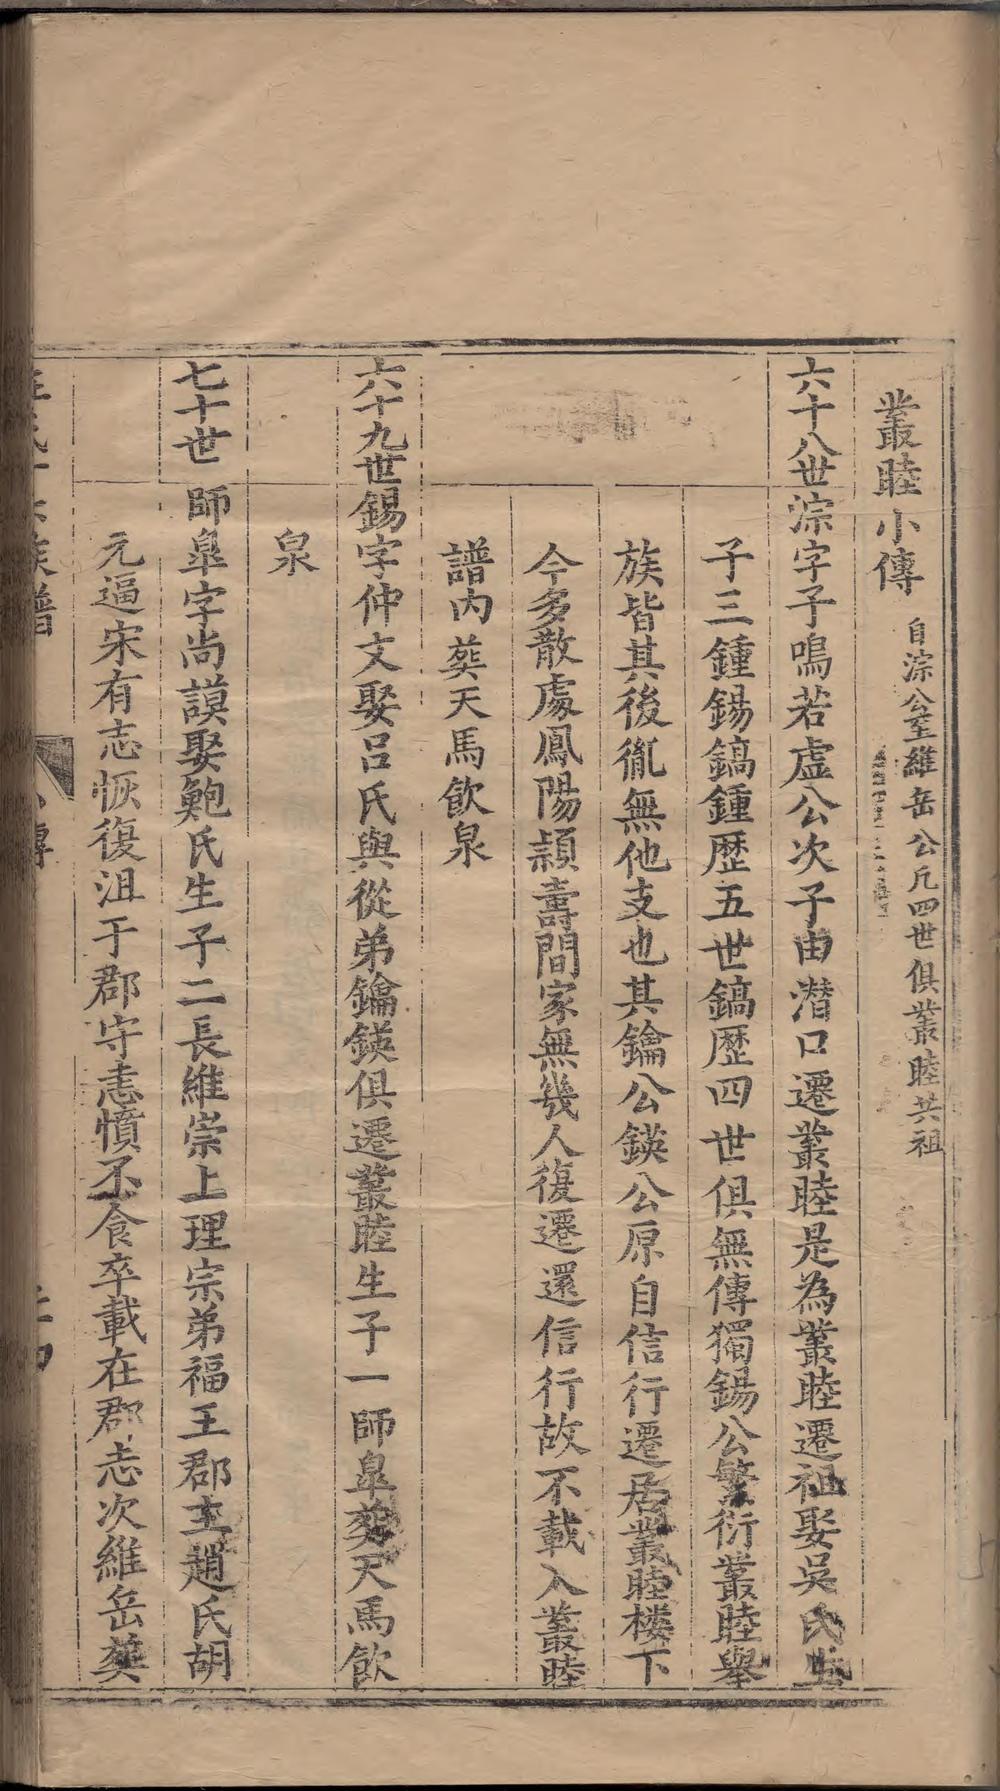 叢睦小傳 自淙公至維岳公凡四世俱叢睦共祖
六十八世淙字子鳴若虛公次子由潛口遷叢睦是為叢睦遷祖娶吳氏生
子三鍾錫鎬鍾歷五世鎬歷四世俱無傳獨錫公繁衍叢睦舉
族皆其後胤無他支也其鑰公鍈公原自信行遷居叢睦樓下
今多散處鳳陽潁壽間家無幾人復遷還信行故不載入叢睦
譜內葬天馬飲泉
六十九世錫字仲文娶呂氏與從弟鑰鍈俱遷叢睦生子一師皐葬天馬飲
泉
七十世 師皐字尚謨娶鮑氏生子二長維崇上理宗弟福王郡主趙氏胡
元逼宋有志恢復沮于郡守恚憤不食卒載在郡志次維岳葬